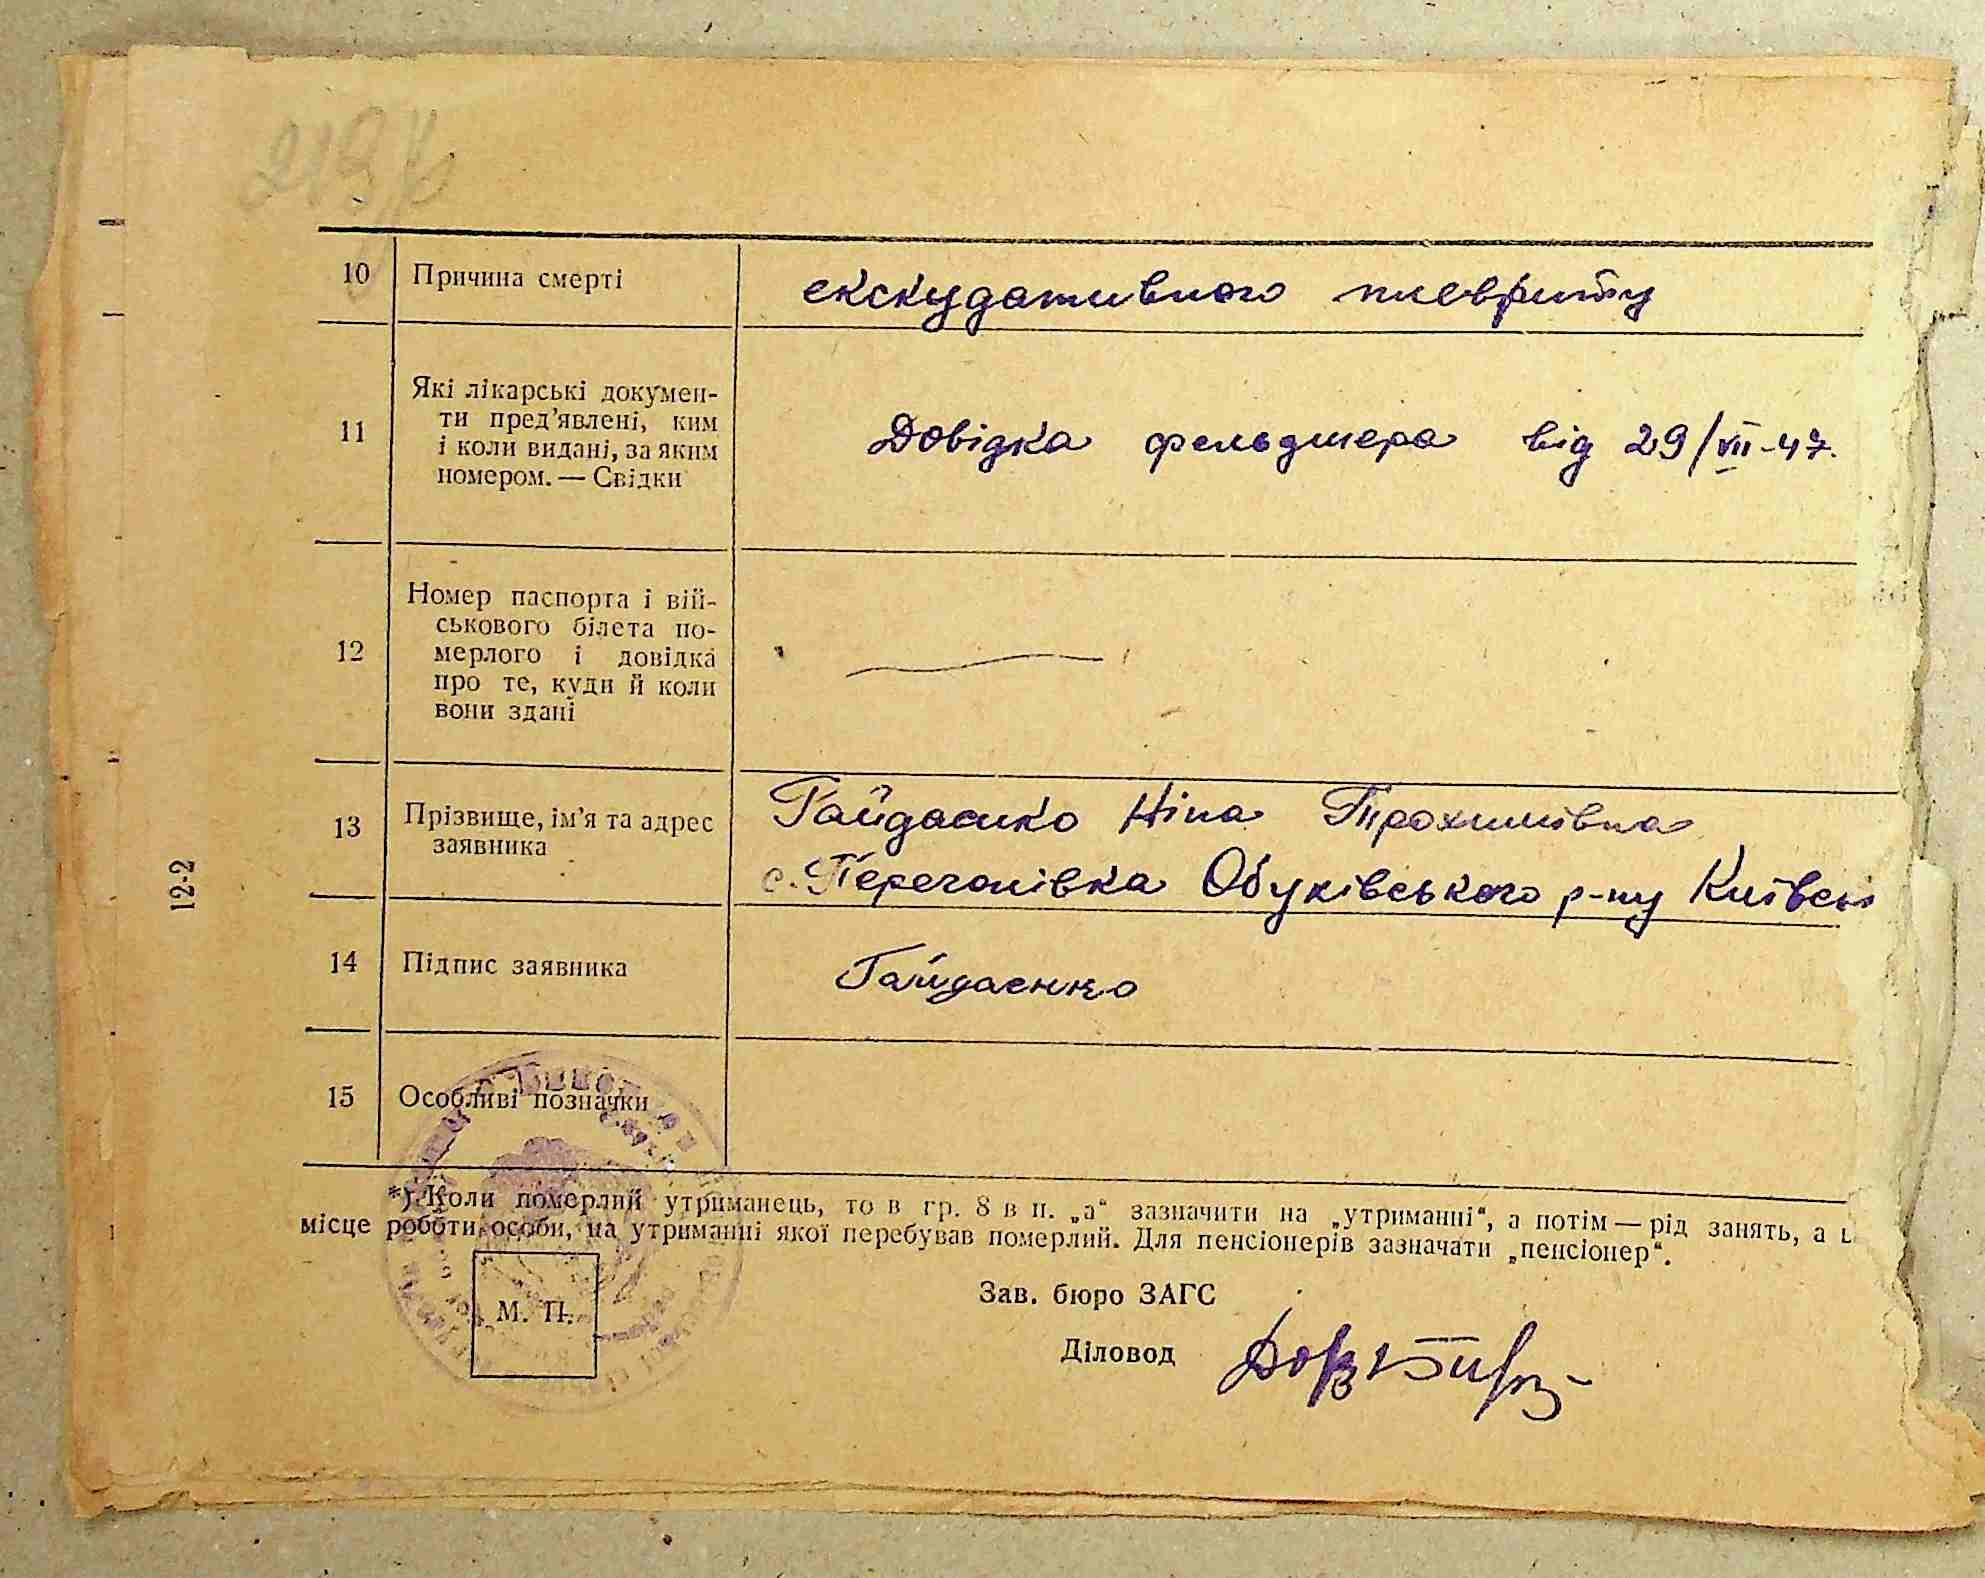 10 Причина смерті екскудативного плевриту
11 Які лікарські докумен-
ти пред'явлені, ким
і коли видані, за яким
номером. — Свідки
Довідка фельдшера від 29/VII-47.
12 Номер паспорта і вій-
ськового білета по-
мерлого і довідка
про те, куди й коли
вони здані
13 Прізвище, ім'я та адрес
заявника
Гайдаєнко Ніна Трохимівна
с. Перегонівка Обухівського р-ну Київсь
14 Підпис заявника Гайдаєнко
15 Особливі позначки
*) Коли померлий утриманець, то в гр. 8 в п. „а“ зазначити на „утриманні“, а потім — рід занять, а
місце роботи особи, на утриманні якої перебував померлий. Для пенсіонерів зазначати „пенсіонер“.
М. П.
Зав. бюро ЗАГС
Діловод
12-2